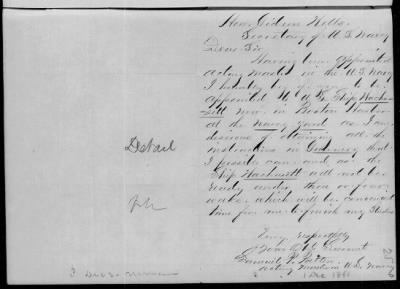 Hon. Gideon Wells.
Secretary of U S Navy
Dear Sir
Having been appointed
acting Master in the U.S. Navy
I hereby beg you to be
appointed to U.S. Ship Wachu
sett now in Boston Harbor
at the Navy Yard as I am
desirous of obtaining all the
instructions in Gunnery that
I possibly can and as the
Ship Wachusett will not be
ready under three or four
weeks, which will be convenient
time for me to finish my
Very respectfully
Your Obt Servant
Samuel
acting Master U.S. Navy
Detail
1 Dec 1861